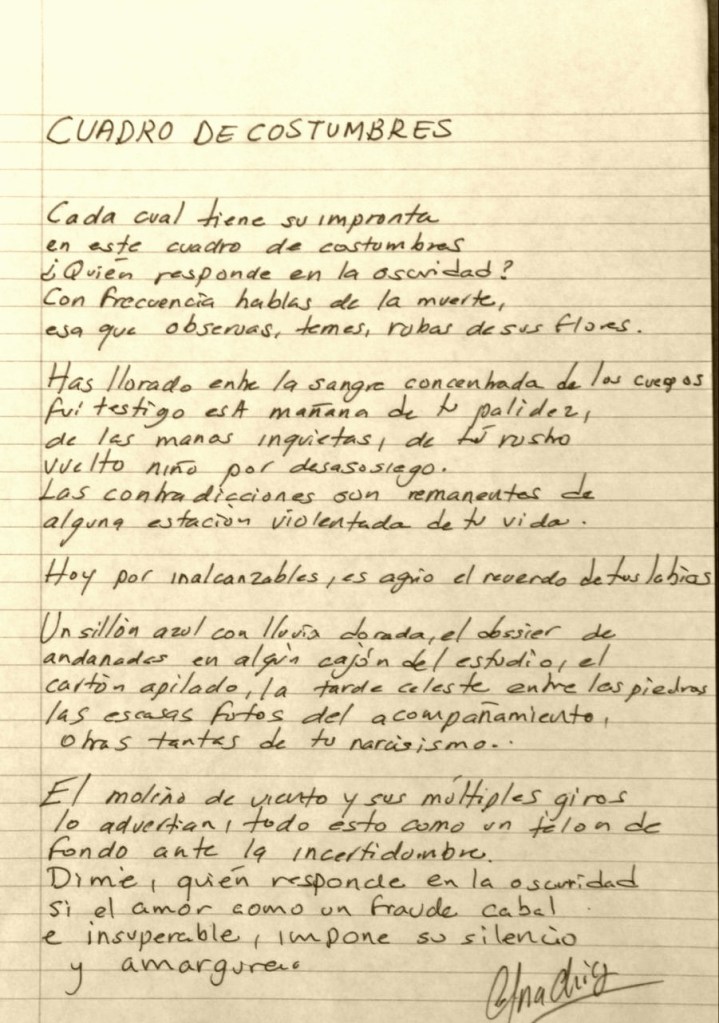 CUADRO DE COSTUMBRES
Cada cual tiene su impronta
en este cuadro de costumbres
¿Quién responde en la oscuridad?
Con frecuencia hablas de la muerte,
esa que observas, temes, robas de sus flores.
Has llorado entre la sangre concentrada de los cuerpos
fui testigo esA mañana de tu palidez,
de las manos inquietas, de tú rostro
vuelto niño por desasosiego.
Las contradicciones son remanentes de
alguna estación violentada de tu vida.
Hoy por inalcanzables, es agrio el recuerdo de tus labios
Un sillón azul con lluvia dorada, el dossier de
andanadas en algún cajón del estudio, el
cartón apilado, la tarde celeste entre las piedras
las escasas fotos del acompañamiento,
otras tantas de tu narcisismo..
El molino de viento y sus múltiples giros
lo advertían, todo esto como un télon de
fondo ante la incertidumbre.
Dime, quién responde en la oscuridad
si el amor como un fraude cabal
e insuperable, impone su silencio
y amargura..